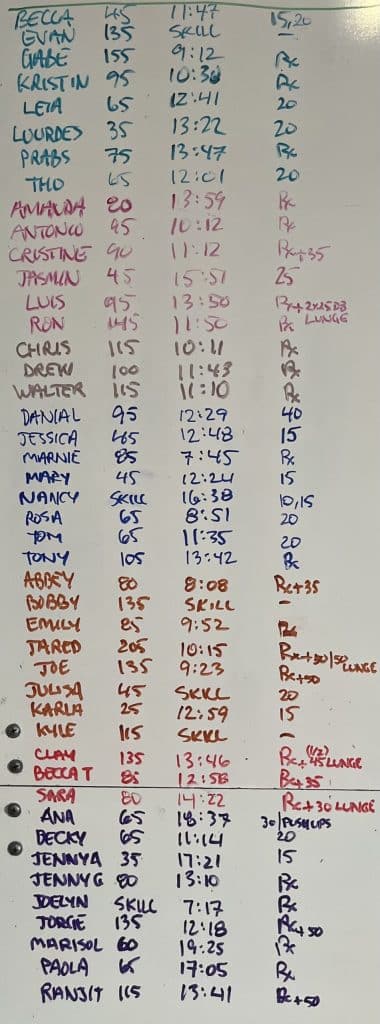 BECCA 45 11:47 15,20
EVAN 135 SKILL -
GABE 155 9:12 Rx
KRISTIN 95 10:30 Rx
LETA 65 12:41 20
LOURDES 35 13:22 20
PRABS 75 13:47 Rx
THO 65 12:01 20
AMANDA 80 13:59 Rx
ANTONIO 95 10:12 Rx
CRISTINE 90 11:12 Rx+35
JASMIN 45 15:51 25
LUIS 95 13:50 Rx+2x25DB
RON 145 11:50 Rx LUNGE
CHRIS 115 10:11 Rx
DREW 100 11:43 Rx
WALTER 115 11:10 Rx
DANIAL 95 12:29 40
JESSICA 65 12:48 15
MARNIE 85 7:45 Rx
MARY 45 12:24 15
NANCY SKILL 16:38 10,15
ROSA 65 8:51 20
TOM 65 11:35 20
TONY 105 13:42 Rx
ABBEY 80 8:08 Rx+35
BOBBY 135 SKILL -
EMILY 85 9:52 Rx
JARED 205 10:15 Rx+50/50
JOE 135 9:23 Rx+50 LUNGE
JULISA 45 SKILL 20
KARLA 25 12:59 15
KYLE 115 SKILL -
CLAY 135 13:46 Rx+(1/2)45 LUNGE
BECCA T 85 12:58 Rx+35
SARA 80 14:22 Rx+30 LUNGE
ANA 65 18:37 30/PUSHUPS
BECKY 65 11:14 20
JENNY A 35 17:21 15
JENNY G 80 13:10 Rx
JOELYN SKILL 7:17 Rx
JORGE 135 12:18 Rx+50
MARISOL 60 19:25 Rx
PAOLA 65 17:05 Rx
RANJIT 115 13:41 Rx+50